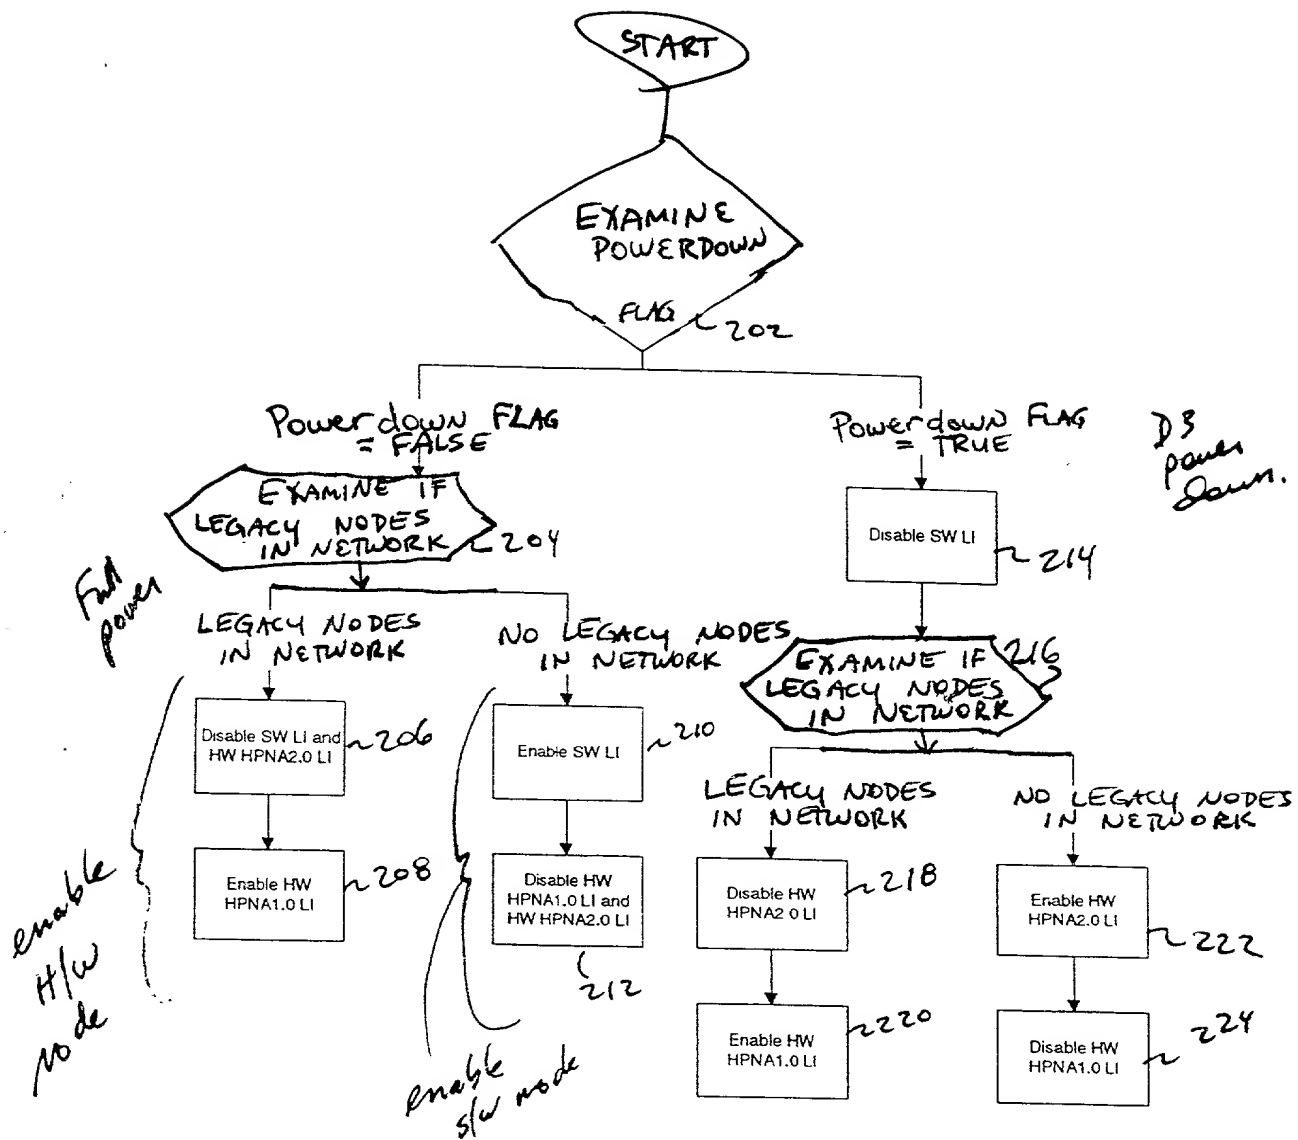 START
EXAMINE
POWERDOWN
FLAG
202
Powerdown FLAG
= FALSE
Powerdown FLAG
= TRUE
D3
power
down.
EXAMINE IF
LEGACY NODES
IN NETWORK
204
Disable SW LI
214
Full
power
LEGACY NODES
IN NETWORK
NO LEGACY NODES
IN NETWORK
EXAMINE IF
LEGACY NODES
IN NETWORK
216
Disable SW LI and
HW HPNA2.0 LI
206
Enable SW LI
210
LEGACY NODES
IN NETWORK
NO LEGACY NODES
IN NETWORK
Enable HW
HPNA1.0 LI
208
Disable HW
HPNA1.0 LI and
HW HPNA2.0 LI
212
Disable HW
HPNA2 0 LI
218
Enable HW
HPNA2.0 LI
222
enable
H/W
node
Enable HW
HPNA1.0 LI
220
Disable HW
HPNA1.0 LI
224
enable
s/w mode